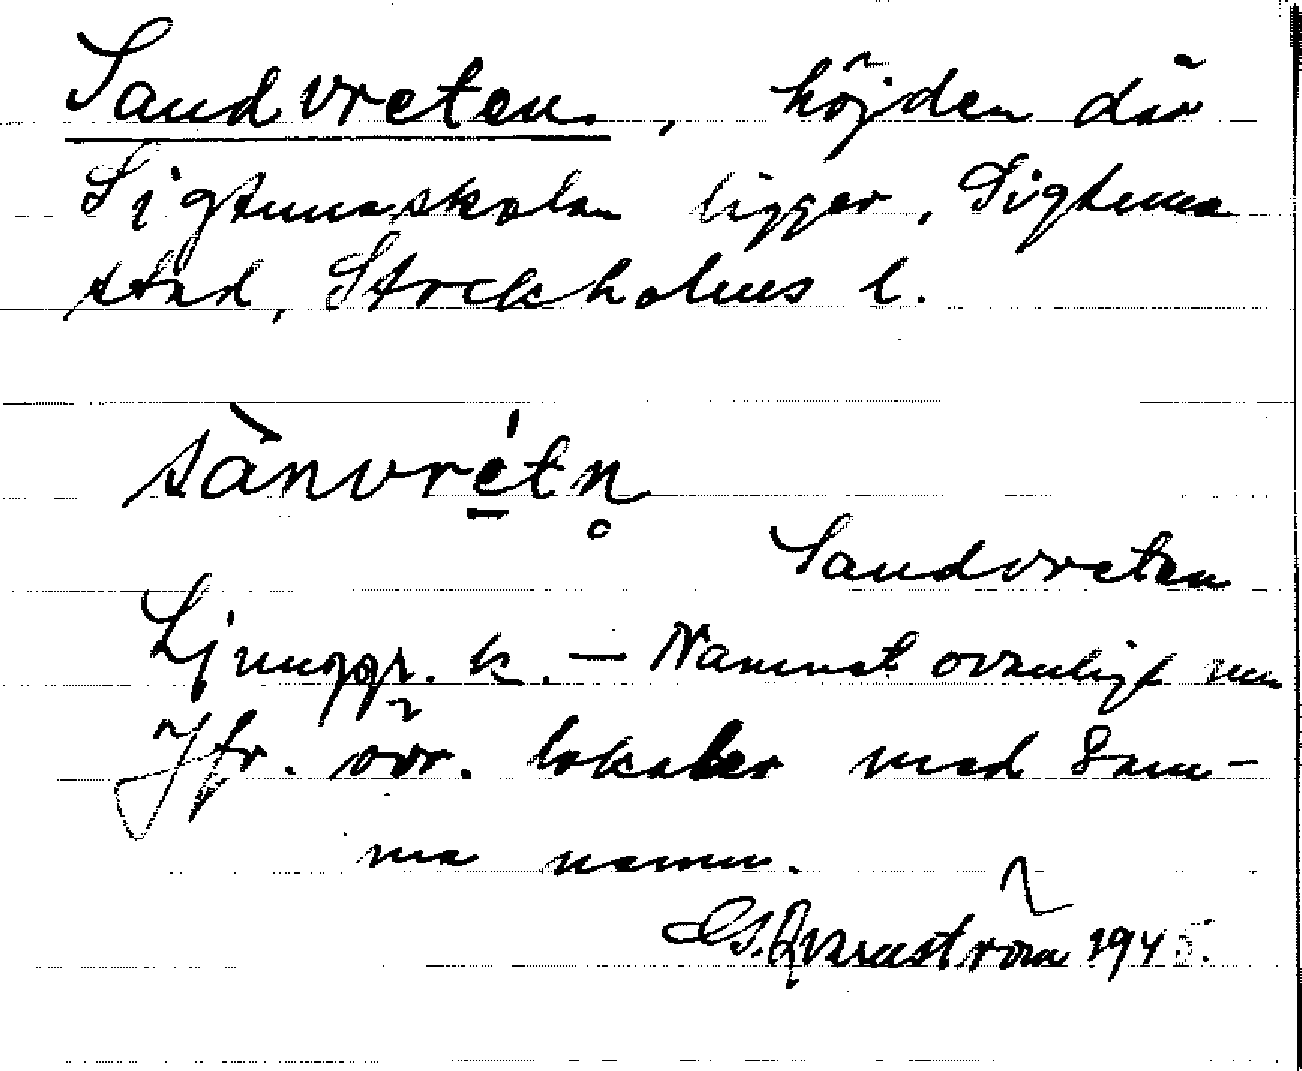 Sandvreten, höjden där
Sigtunaskolan ligger, Sigtuna
stad, Stockholms l.
sànvrétn̥
Sandvreten
Ljunggr. k. — Namnet ovanligt nu
Jfr. övr. lokaler med sam-
ma namn.
G. Qvarnström 1945.